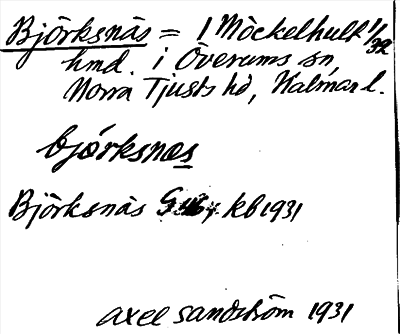 Björksnäs = 1 Möckelhult 1/32
hmd. i Överums sn,
Norra Tjusts hd, Kalmar l.
björksnæs
Björksnäs kb 1931
Axel Sandström 1931